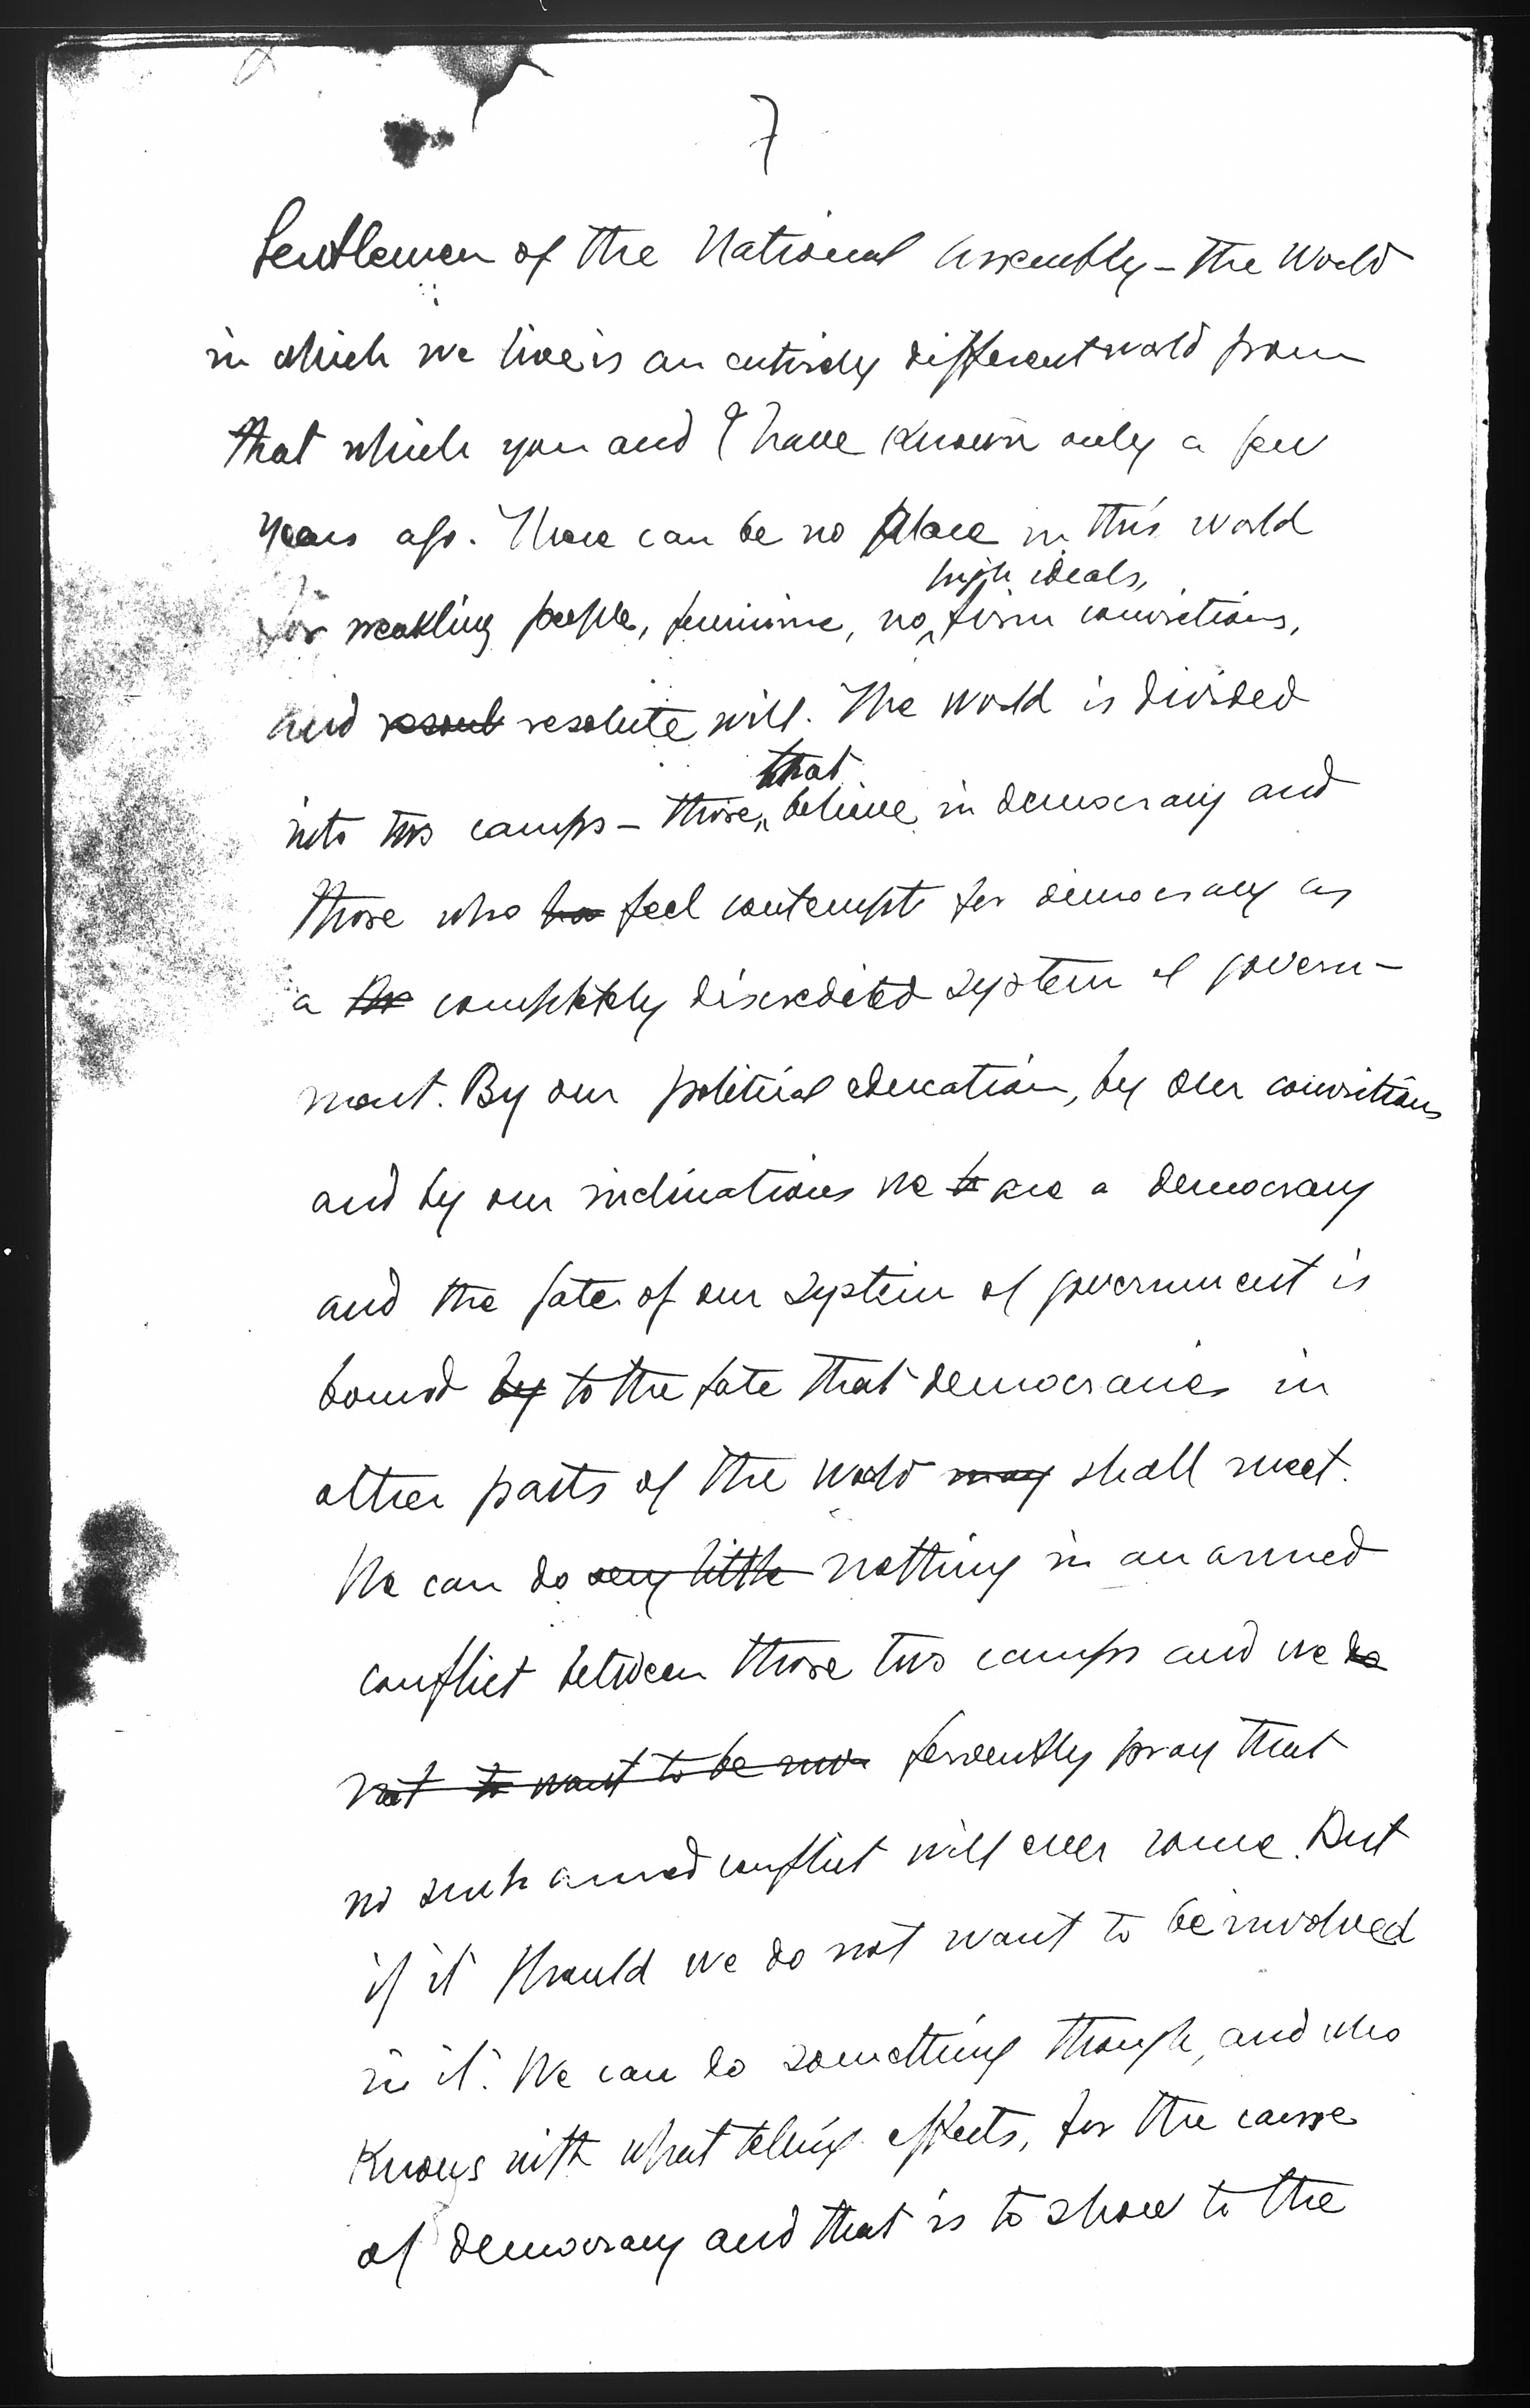 7
Gentlemen of the National Assembly – The World
in which we live is an entirely different world from
that which you and I have known only a few
years ago. There can be no place in this world
high ideals,
for weakling people, feminine, no firm convictions,
and resolute will. The world is divided
that
into two camps – those believe in democracy and
those who ha feel contempt for democracy as
a completely discredited system of govern-
ment. By our political education, by our convictions
and by our inclinations we are a democracy
and the fate of our system of government is
bound by to the fate that democracies in
other parts of the world may shall meet.
We can do very little nothing in an armed
conflict between those two camps and we do
not to want to be fervently pray that
no such armed conflict will ever come. But
if it should we do not want to be involved
in it. We can do something though, and who
knows with what telling effects, for the cause
of democracy and that is to show to the